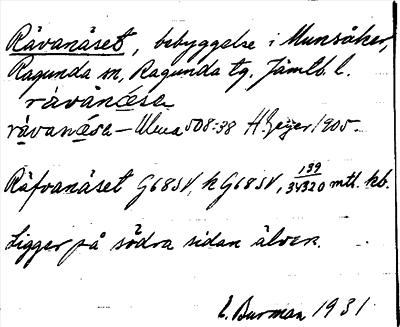 Rävanäset, bebyggelse i Munsåker,
Ragunda sn, Ragunda tg, Jämtl. l.
rävànä́sə
rävanäsə – Ulma 508:38 H. Geijer 1905.
Räfvanäset G68SV, k G68SV, 139/34320 mtl. kb.
Ligger på södra sidan älven.
E. Burman 1931